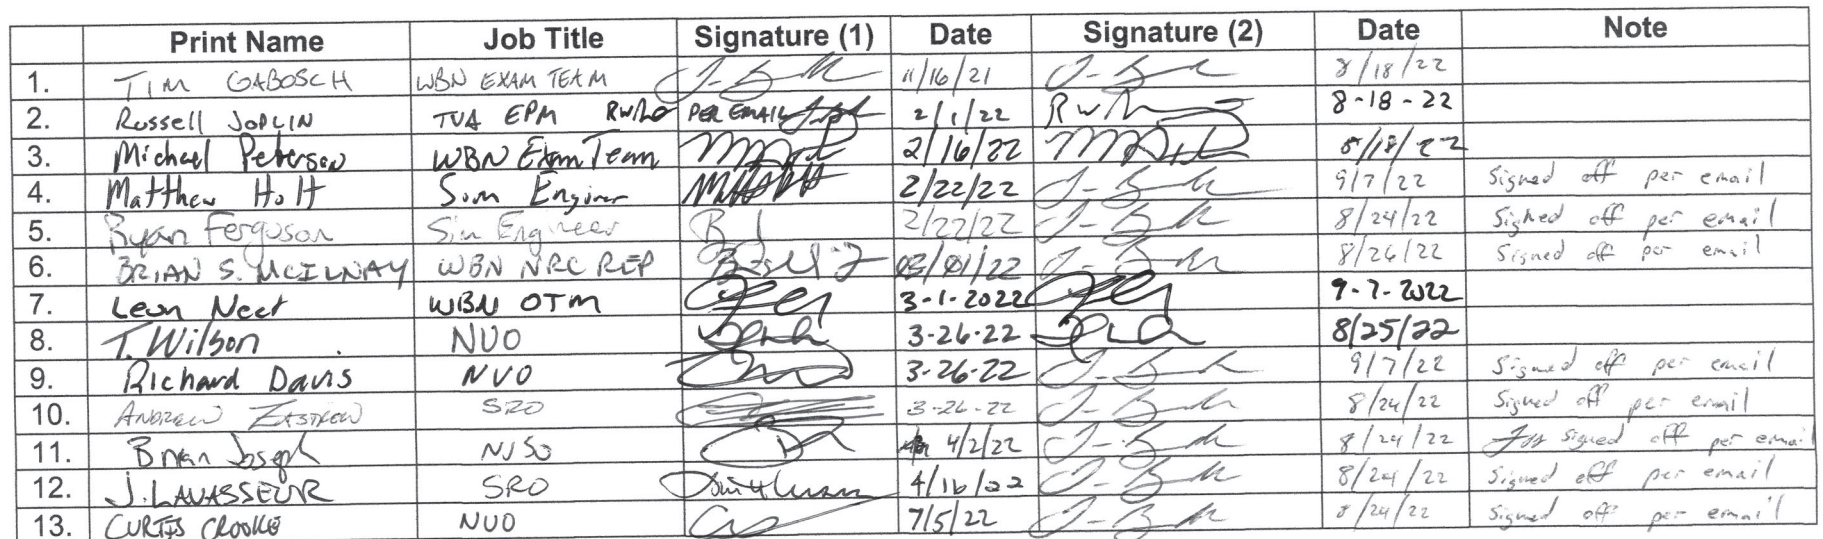 Print Name Job Title Signature (1) Date Signature (2) Date Note
1. TIM GABOSCH WBN EXAM TEAM 11/16/21 8/18/22
2. Russell JOPLIN TVA EPM PER EMAIL 2/1/22 8-18-22
3. Michael Peterson WBN Exam Team 2/16/22 8/18/22
4. Matthew Holt Sim Engineer 2/22/22 9/7/22 Signed off per email
5. Ryan Ferguson Sim Engineer 2/22/22 8/24/22 Signed off per email
6. BRIAN S. MCILNAY WBN NRC REP 03/01/22 8/26/22 Signed off per email
7. Leon Neet WBN OTM 3-1-2022 9-7-2022
8. T. Wilson NUO 3-26-22 8/25/22
9. Richard Davis NUO 3-26-22 9/7/22 Signed off per email
10. ANDREW SRO 3-26-22 8/24/22 Signed off per email
11. Brian Joseph NUSO 4/2/22 8/24/22 signed off per email
12. J. LAVASSEUR SRO 4/16/22 8/24/22 Signed off per email
13. CURTIS CROOKE NUO 7/5/22 8/24/22 Signed off per email